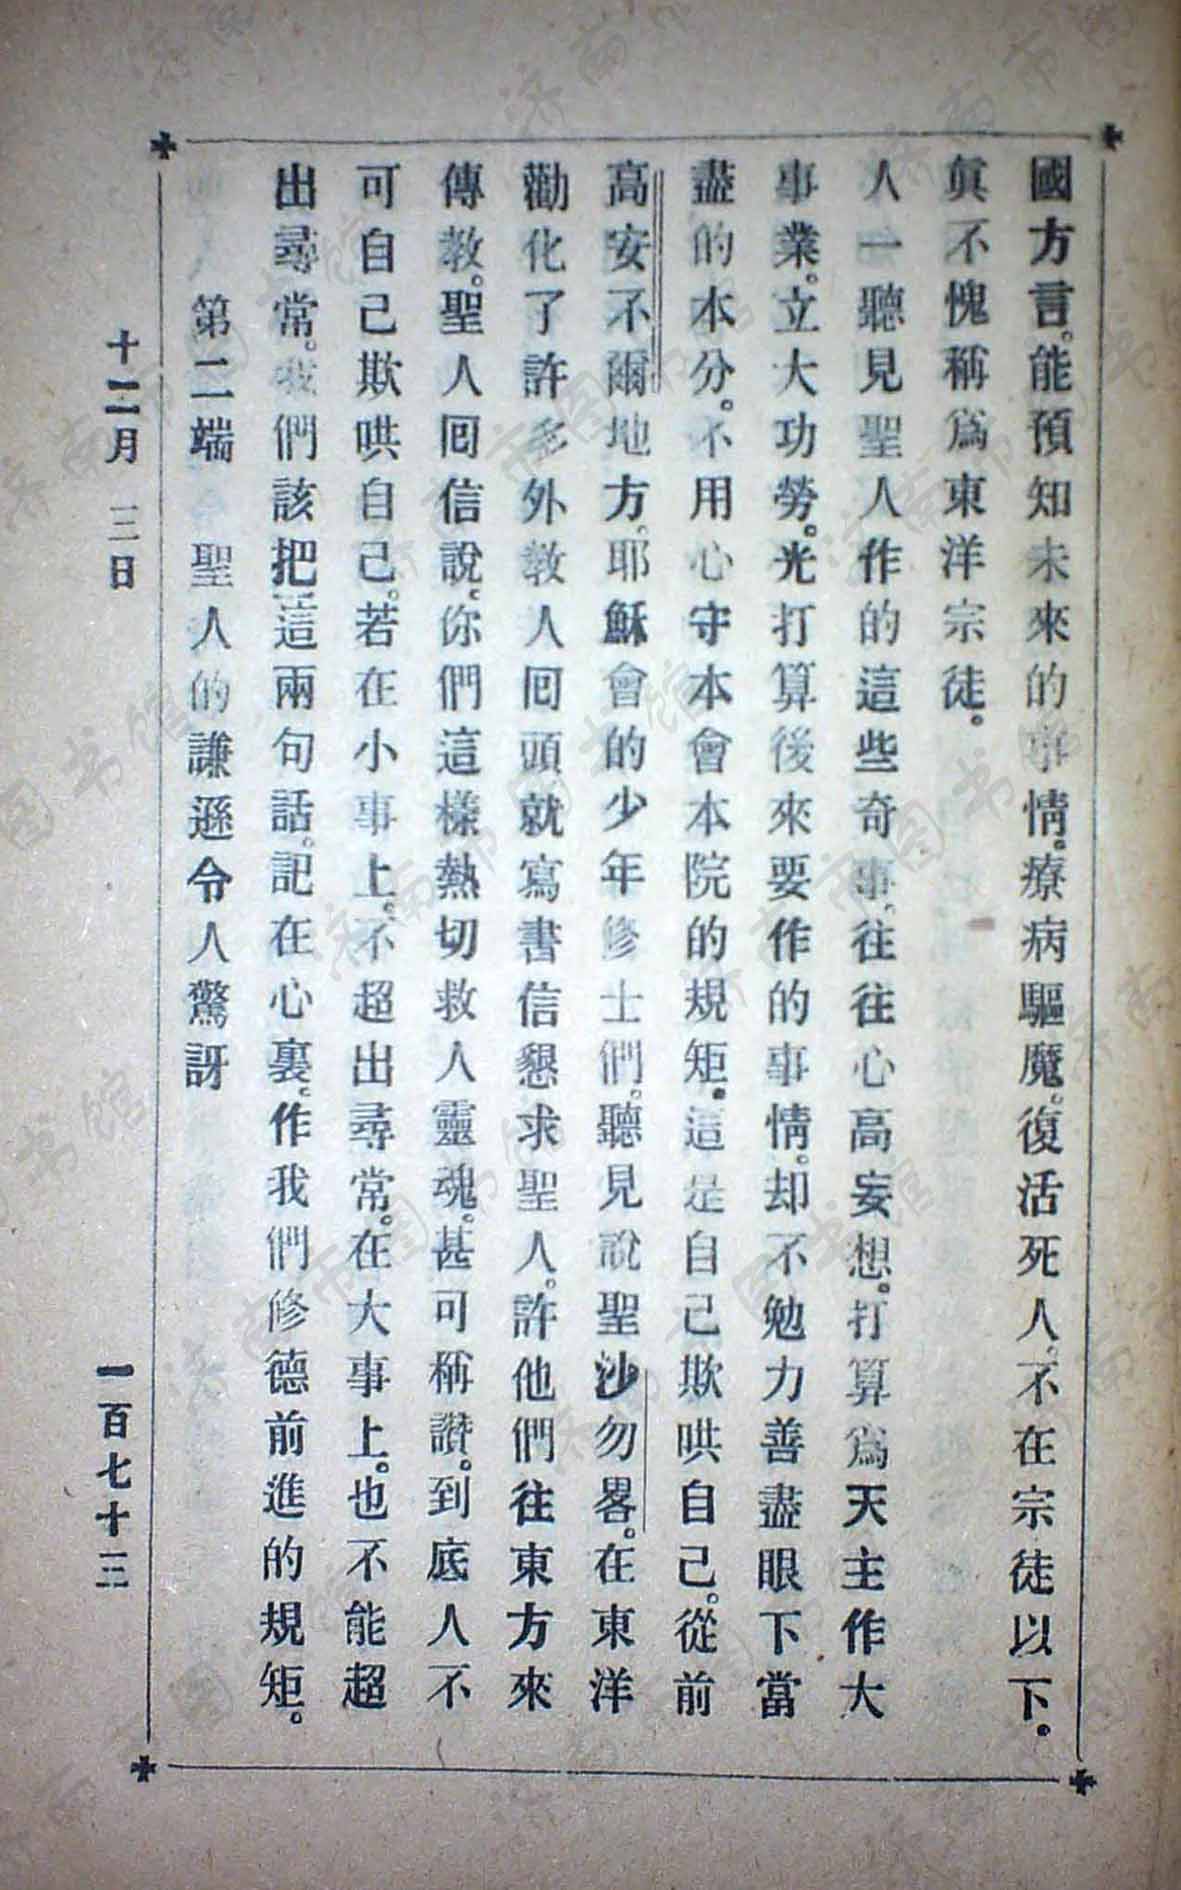 國方言。能預知未來的事情。療病驅魔。復活死人。不在宗徒以下。
眞不愧稱爲東洋宗徒。
人一聽見聖人作的這些奇事。往往心高妄想。打算爲天主作大
事業。立大功勞。光打算後來要作的事情。却不勉力善盡眼下當
盡的本分。不用心守本會本院的規矩。這是自己欺哄自己。從前
高安不爾地方。耶穌會的少年修士們。聽見說聖沙勿畧。在東洋
勸化了許多外教人回頭就寫書信懇求聖人。許他們往東方來
傳教。聖人回信說。你們這樣熱切救人靈魂。甚可稱讚。到底人不
可自己欺哄自己。若在小事上。不超出尋常。在大事上。也不能超
出尋常。我們該把這兩句話。記在心裏。作我們修德前進的規矩。
第二端 聖人的謙遜令人驚訝
十二月 三日
一百七十三
濟南市图书馆